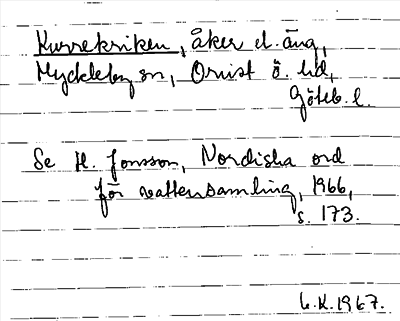 Kurrekriken, åker el. äng,
Myckleby sn, Orust ö. hd,
Göteb. l.
Se H. Jonsson, Nordiska ord
för vattensamling, 1966,
s. 173.
G.K. 1967.